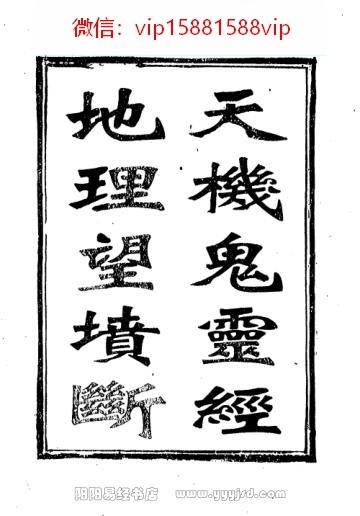 微信：vip15881588vip
天機鬼靈經
地理望墳斷
阳阳易经书店 www.yyyjsd.com